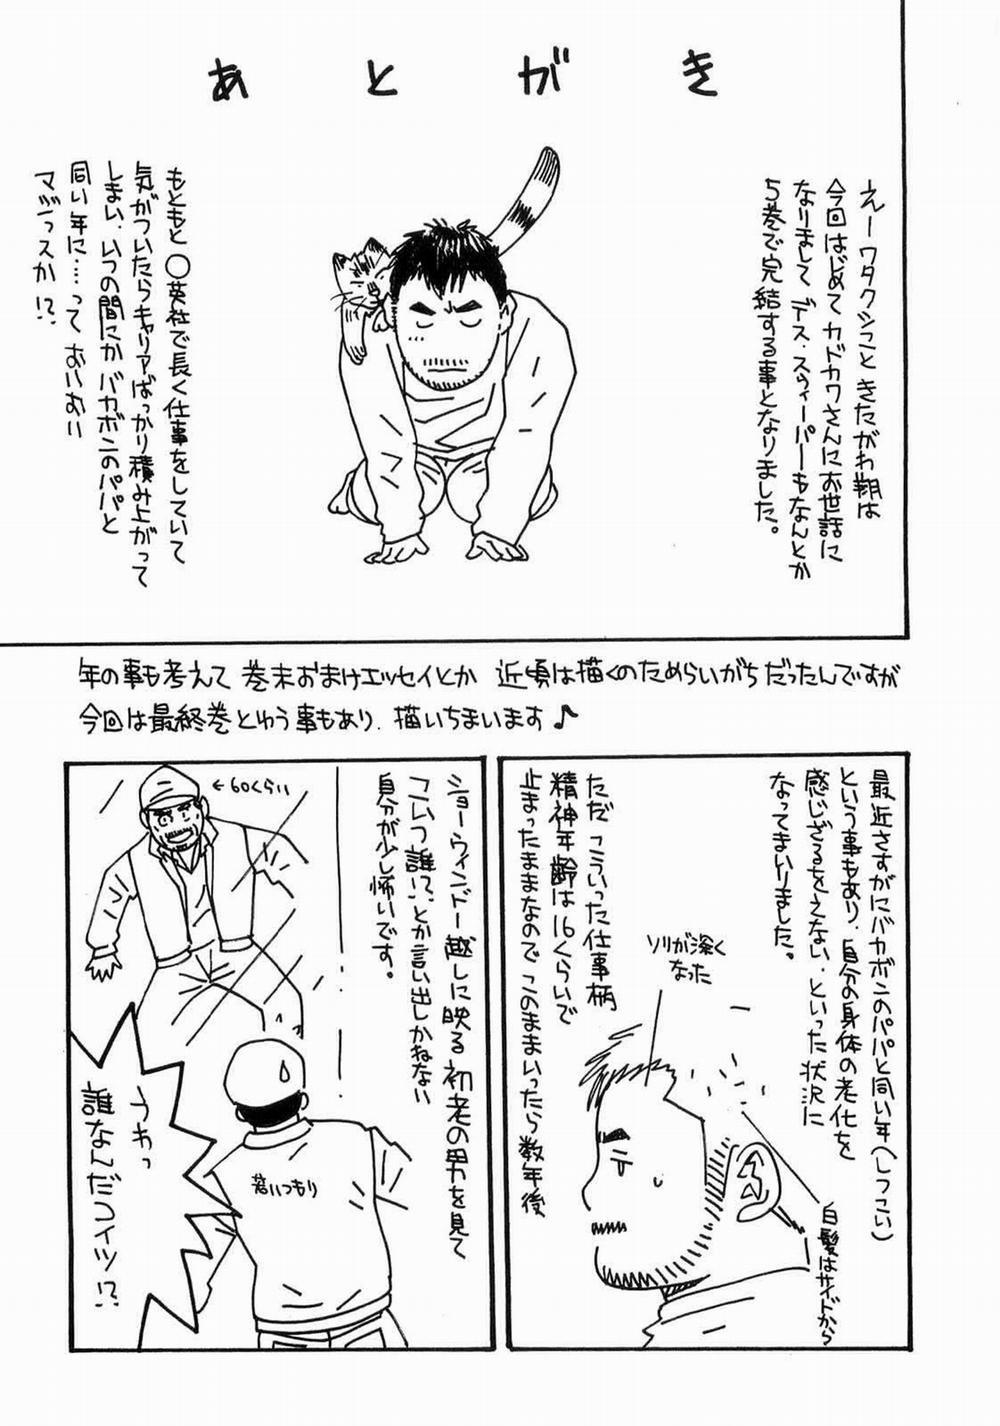 あとがき
えーワタクシこときたがわ翔は
今回はじめてカドカワさんにお世話に
なりましてデス・スウィーパーもなんとか
5巻で完結する事となりました。
もともと〇英社で長く仕事をしていて
気がついたらキャリアばっかり積み上がって
しまい、いつの間にかバカボンのパパと
同い年に…っておいおい
マジっスか!?
年の事も考えて巻末おまけエッセイとか 近頃は描くのためらいがちだったんですが
今回は最終巻とゆう事もあり、描いちまいます♪
最近さすがにバカボンのパパと同い年(しつこい)
という事もあり、自分の身体の老化を
感じざるをえない、といった状況に
なってまいりました。
ソリが深く
なった
白髪はサイドから
ただ こういった仕事柄
精神年齢は16くらいで
止まったままなので このままいったら数年後
ショーウィンドー越しに映る初老の男を見て
「こいつ誰!?」とか言い出しかねない
自分が少し怖いです。
←60くらい
若いつもり
うわっ
誰なんだコイツ!?